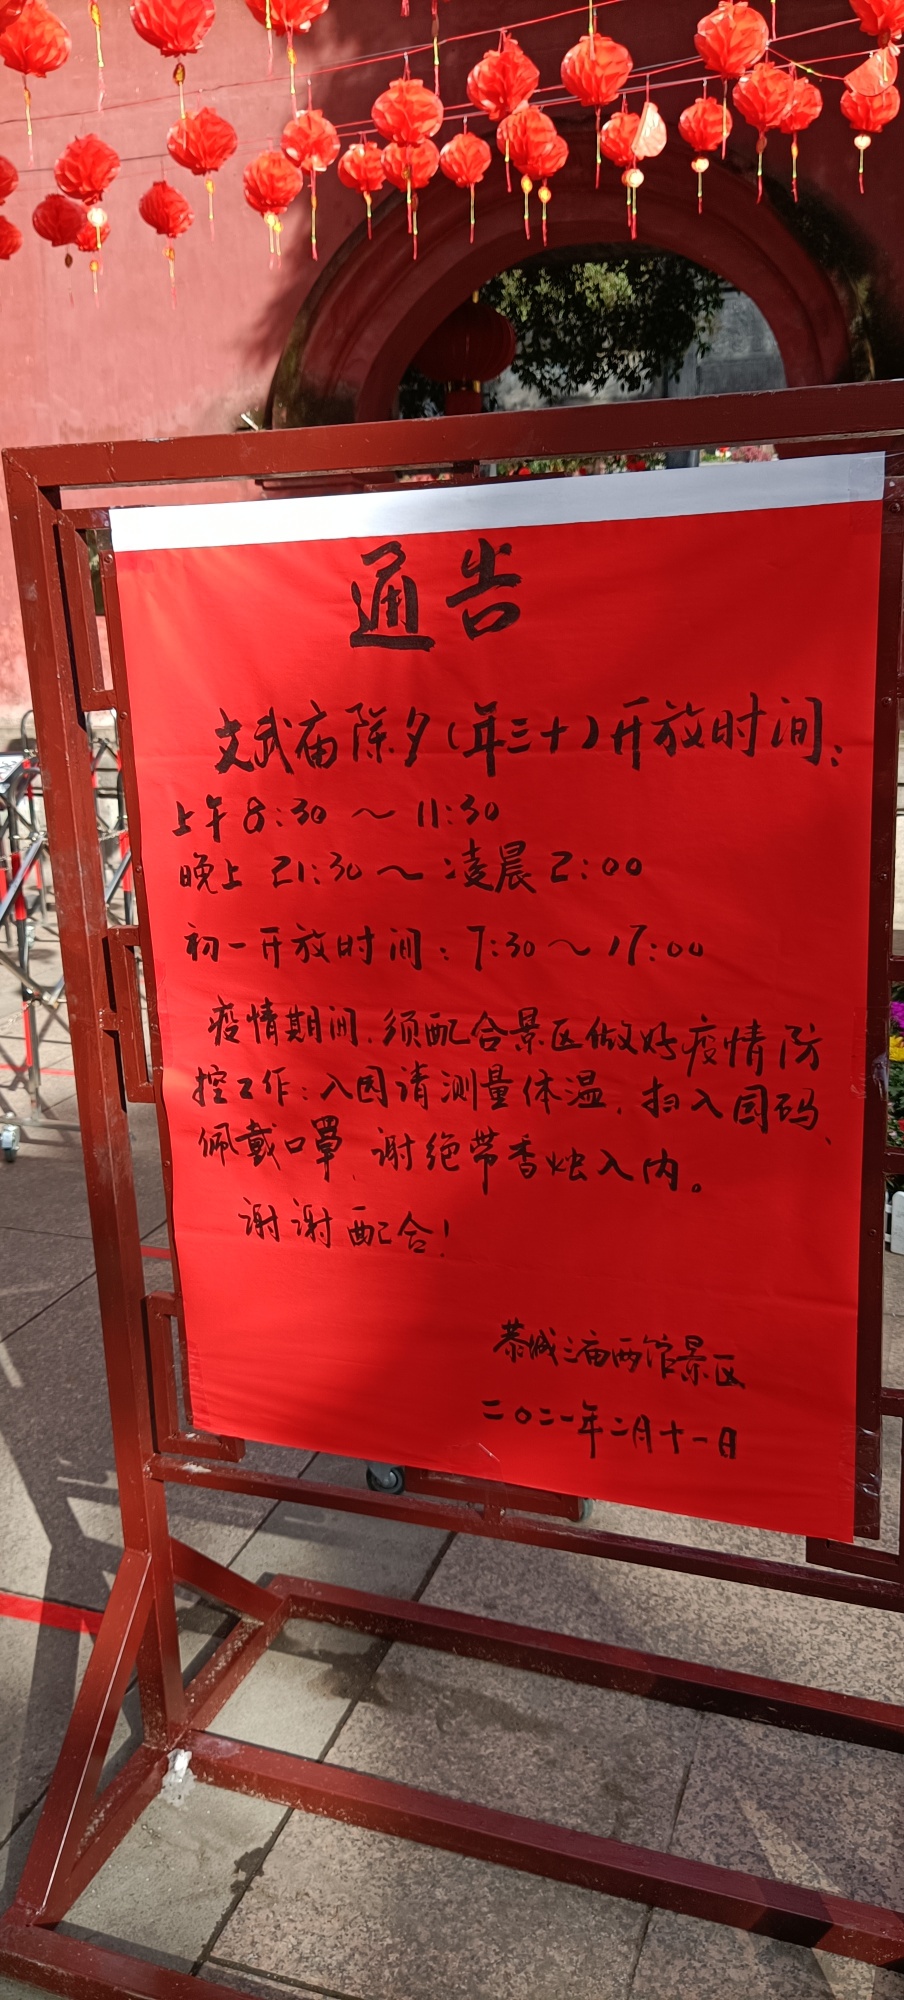 通告
文武庙除夕(年三十)开放时间:
上午8:30～11:30
晚上 21:30～凌晨2:00
初一开放时间:7:30～17:00
疫情期间,须配合景区做好疫情防
控工作:入园请测量体温,扫入园码、
佩戴口罩,谢绝带香烛入内。
谢谢配合!
恭城三庙两馆景区
二〇二一年二月十一日